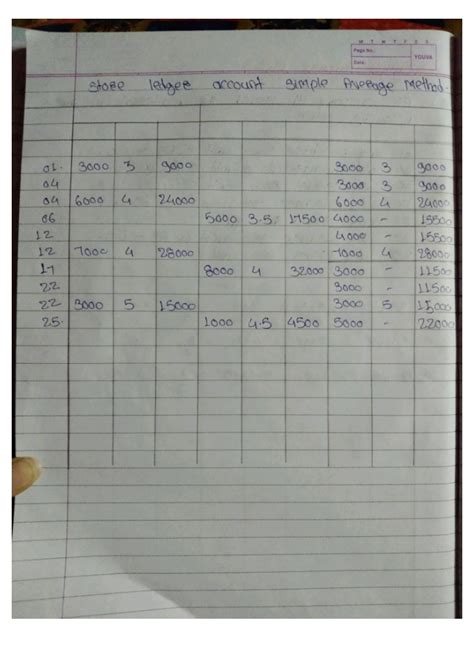 M T W T F S S
Page No.:
Date:
YOUVA
Store ledger account simple Average Method.
01. 3000 3 9000 3000 3 9000
04 3000 3 9000
04 6000 4 24000 6000 4 24000
06 5000 3.5 17500 4000 - 15500
12 4000 - 15500
12 7000 4 28000 7000 4 28000
17 8000 4 32000 3000 - 11500
22 3000 - 11500
22 3000 5 15000 3000 5 15000
25. 1000 4.5 4500 5000 - 22000